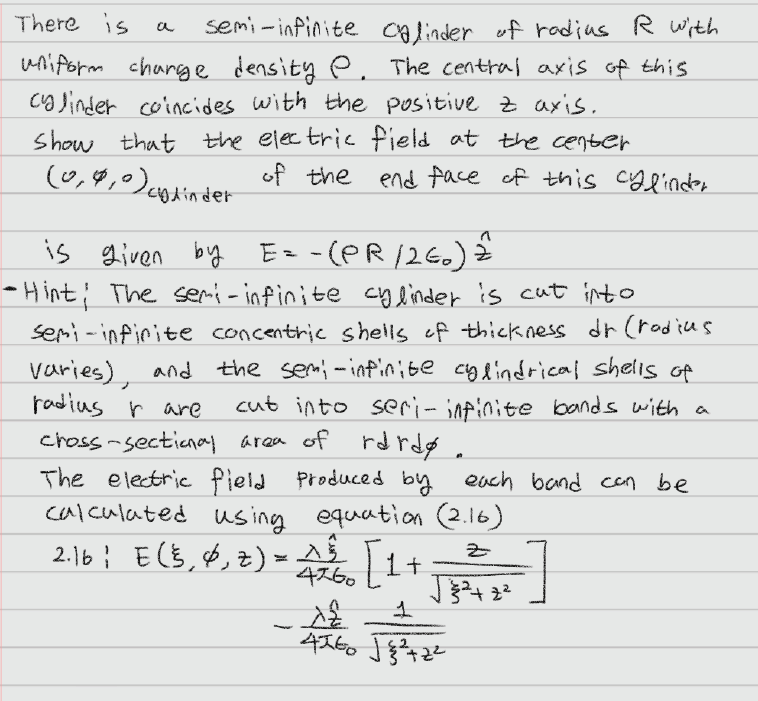 There is a semi-infinite cylinder of radius R with
uniform change density ρ. The central axis of this
cylinder coincides with the positive z axis.
Show that the electric field at the center
(0, φ, 0)cylinder of the end face of this cylinder
is given by E = -(ρR/2ε₀) ẑ
- Hint; The semi-infinite cylinder is cut into
semi-infinite concentric shells of thickness dr (radius
varies), and the semi-infinite cylindrical shells of
radius r are cut into semi-infinite bands with a
cross-sectional area of rdrdφ.
The electric field produced by each band can be
calculated using equation (2.16)
2.16; E(ξ, φ, z) = λξ̂/4πε₀ [1 + z/√(ξ²+z²)]
- λẑ/4πε₀ 1/√(ξ²+z²)